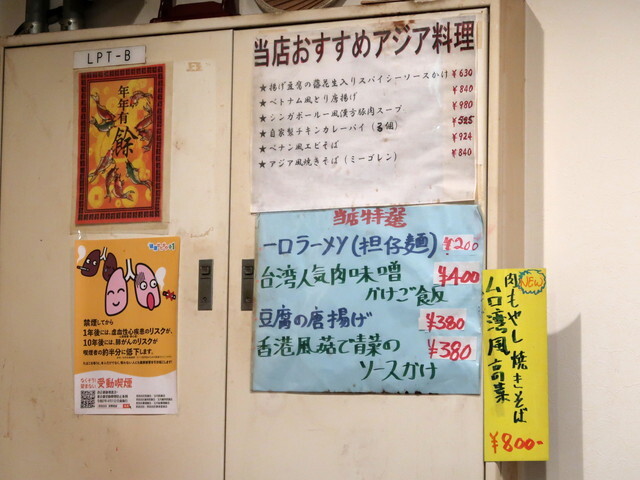 LPT-B
年年有
餘
当店おすすめアジア料理
★揚げ豆腐の落花生入りスパイシーソースかけ ¥630
★ベトナム風とり唐揚げ ¥840
★シンガポール風漢方豚肉スープ ¥980
★自家製チキンカレーパイ(3個) ¥525
★ペナン風エビそば ¥924
★アジア風焼きそば(ミーゴレン) ¥840
当店特選
一口ラーメン(担仔麺) ¥200
台湾人気肉味噌
かけご飯 ¥400
豆腐の唐揚げ ¥380
香港風茹で青菜の
ソースかけ ¥380
NEW
肉もやし焼きそば
台湾風高菜
¥800-
禁煙してから
1年後には、虚血性心疾患のリスクが、
10年後には、肺がんのリスクが
喫煙者の約半分に低下します。
なくそう!
望まない
受動喫煙